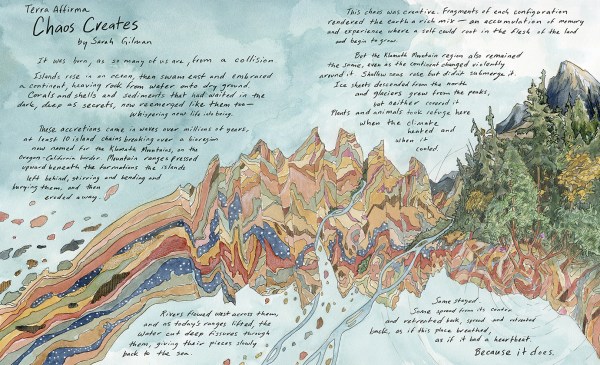 Terra Affirma
Chaos Creates
by Sarah Gilman
It was born, as so many of us are, from a collision.
Islands rose in an ocean, then swam east and embraced
a continent, heaving rock from water onto dry ground.
Corals and shells and sediments that had waited in the
dark, deep as secrets, now reemerged like them too—
whispering new life into being.
These accretions came in waves over millions of years,
at least 10 island chains breaking over a bioregion
now named for the Klamath Mountains, on the
Oregon-California border. Mountain ranges pressed
upward beneath the formations the islands
left behind, stirring and bending and
burying them, and then
eroded away.
Rivers flowed west across them,
and as today's ranges lifted, the
water cut deep fissures through
them, giving their pieces slowly
back to the sea.
This chaos was creative. Fragments of each configuration
rendered the earth a rich mix — an accumulation of memory
and experience where a soul could root in the flesh of the land
and begin to grow.
But the Klamath Mountain region also remained
the same, even as the continent changed violently
around it. Shallow seas rose but didn't submerge it.
Ice sheets descended from the north
and glaciers grew from the peaks,
but neither covered it.
Plants and animals took refuge here
when the climate
heated and
when it
cooled.
Some stayed.
Some spread from its center
and retreated back, spread and retreated
back, as if this place breathed,
as if it had a heartbeat.
Because it does.